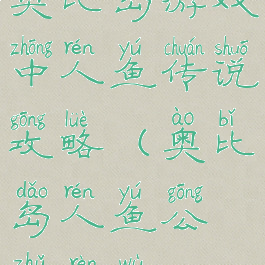 奥比岛游戏
zhōng rén yú chuán shuō
中人鱼传说
gōng lüè ào bǐ
攻略（奥比
dǎo rén yú gōng
岛人鱼公
zhǔ rèn wù